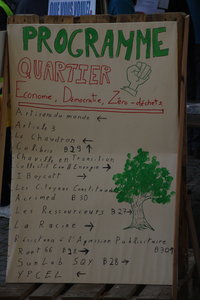 PROGRAMME
QUARTIER
Econome, Démocratie, Zéro-déchets
Artisans du monde ←
Article 3
Le Chaudron ←
Colibris B29 ↑
Chaville en Transition
Collectif Energie →
I-Boycott →
Les Citoyens Constituants
Acrimed B30
Les Ressourceurs B27→
La Racine →
Résistance à l'Agression Publicitaire
B30
Rout 66 B28 →
SunLab SQY B28→
YPCEL ←